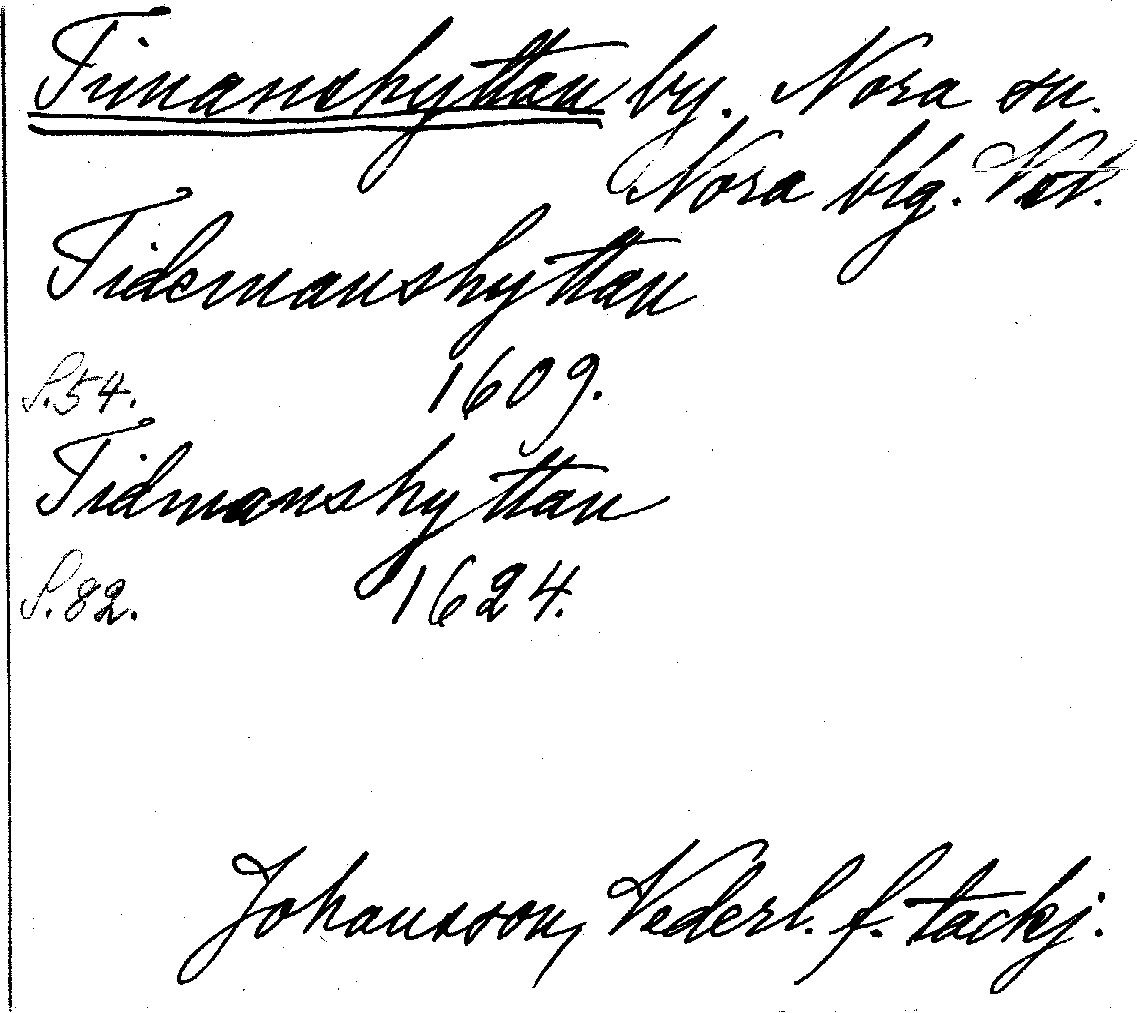 Finanshyttan by. Nora sn.
Nora blg. Vstm.
Tidemanshyttan
S.54. 1609.
Tidmanshyttan
S.82. 1624.
Johansson, Vederl. f. tackj.